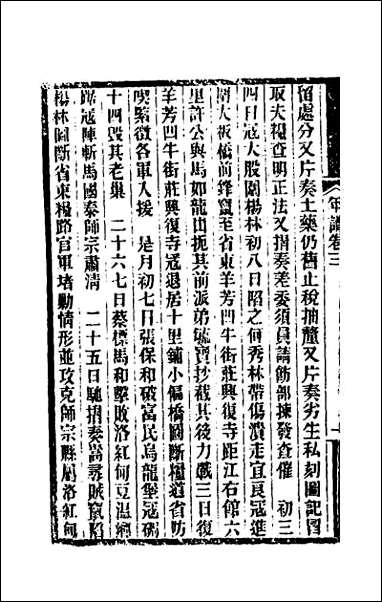 年譜卷三
留處分又片奏土藥仍舊止稅抽釐又片奏劣生私刻圖記冒
取夫糧查明正法又摺奏差委須員請飭部揀發查催　初三
四日寇大股圍楊林初八日陷之何秀林帶傷潰走宜良寇進
大板橋前鋒竄至省東羊芳凹牛街莊興復寺距江右館六
里許公與馬如龍出扼其前派弟毓寶抄截其後力戰三日復
羊芳凹牛街莊興復寺寇退居十里鋪小偏橋圖斷糧道省防
喫緊徵各軍入援　是月初七日張保和破富民烏龍堡寇碉
十四毀其老巢　二十六七日蔡標馬和擊敗洛紅甸豆溫鄉
踞寇陣斬馬國泰師宗肅清　二十五日馳摺奏嵩尋賊竄陷
楊林圖斷省東糧路官軍堵勦情形並攻克師宗縣屬洛紅甸